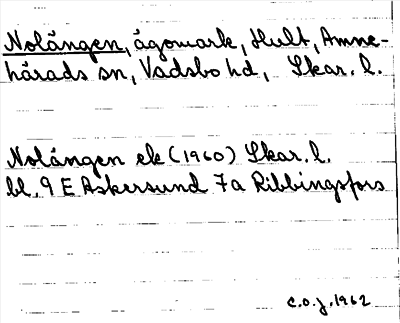 Nolängen, ägomark, Hult, Amne-
härads sn, Vadsbo hd, Skar. l.
Nolängen ek (1960) Skar. l.
bl. 9 E Askersund 7a Ribbingsfors
C.O.J. 1962